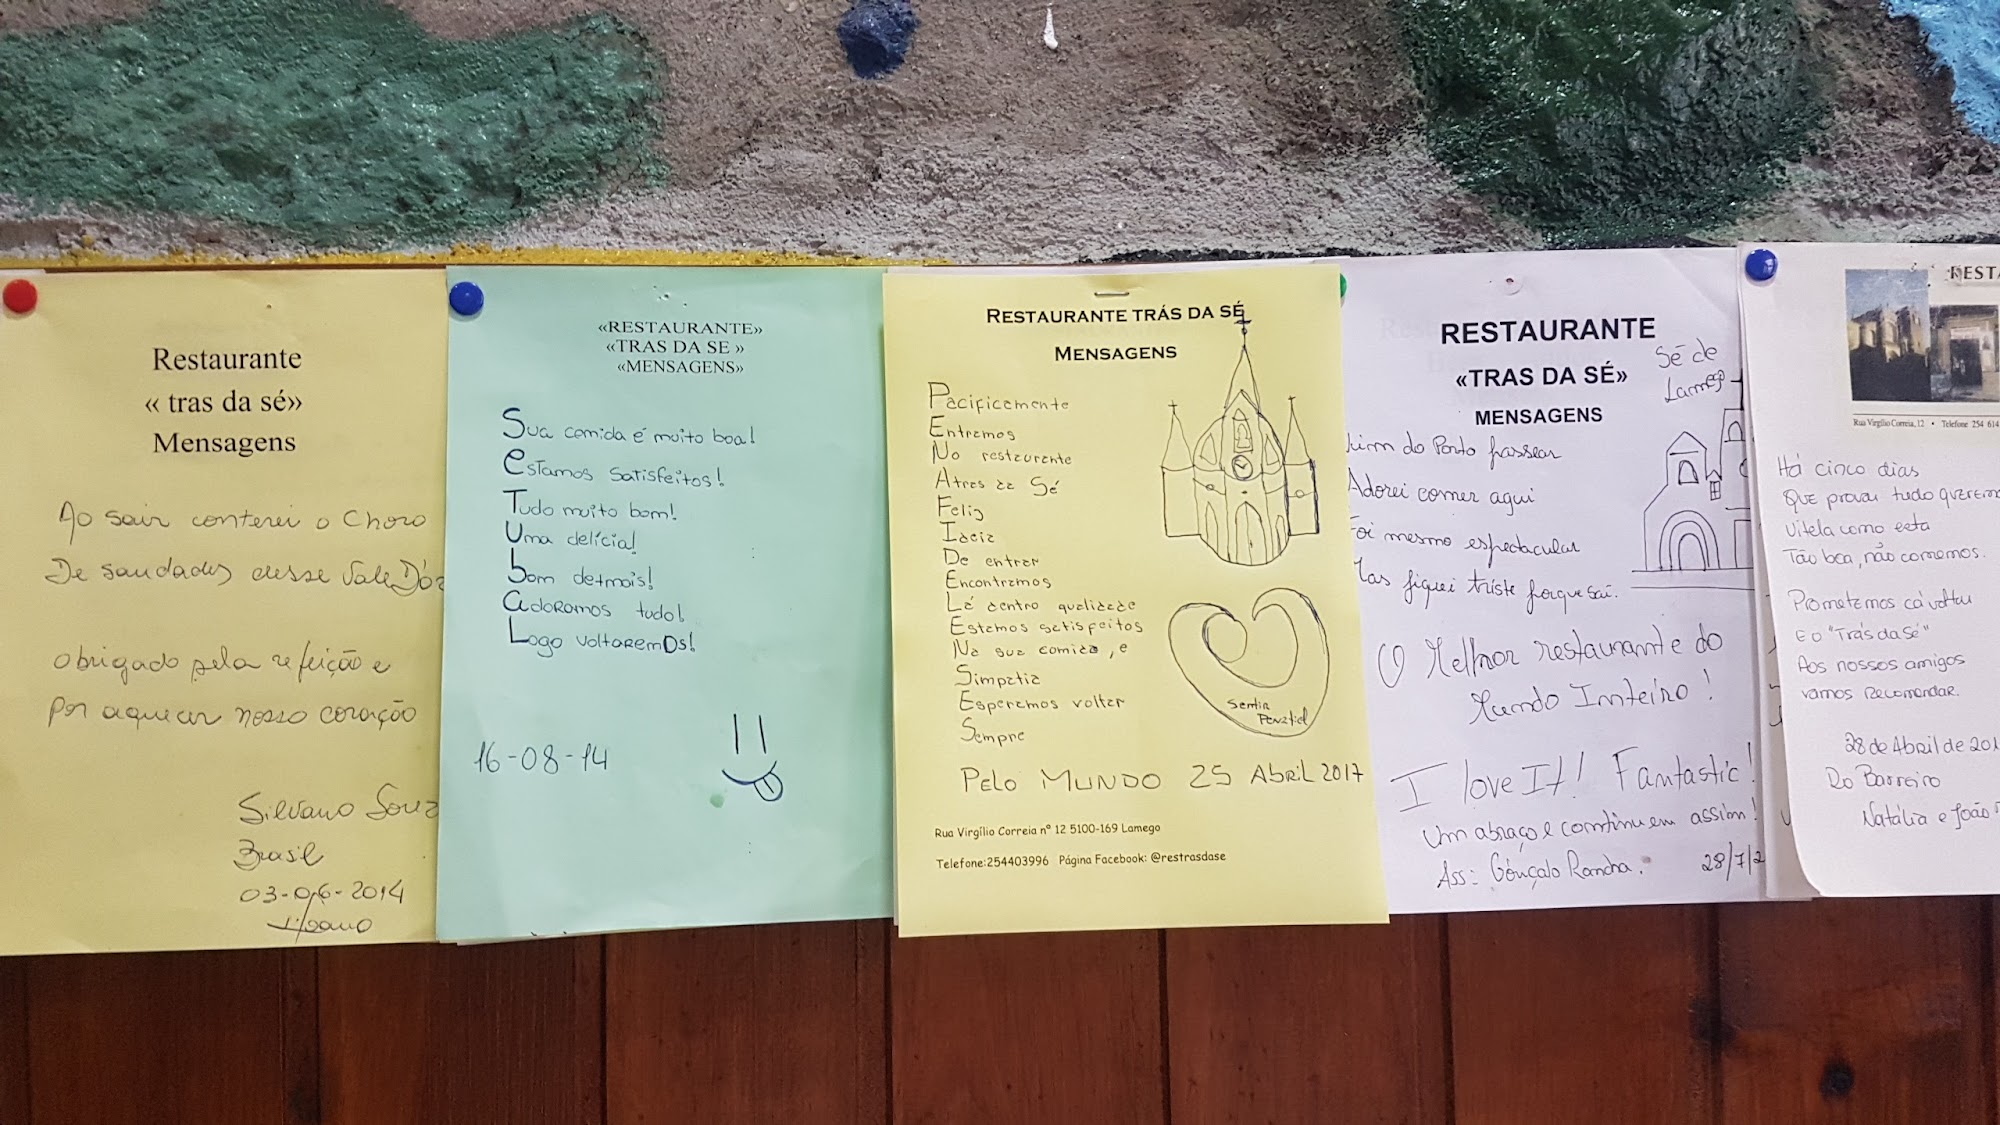 Restaurante
« tras da sé»
Mensagens
Ao sair conterei o Choro
De saudades desse Vale
obrigado pela refeição e
por aquecer nosso coração
Silvano
Brasil
03-06-2014
«RESTAURANTE»
«TRAS DA SE »
«MENSAGENS»
Sua comida é muito boa!
estamos satisfeitos!
Tudo muito bom!
Uma delícia!
bom demais!
adoramos tudo!
Logo voltaremos!
16-08-14
RESTAURANTE TRÁS DA SÉ
MENSAGENS
Pacificamente
Entramos
No restaurante
Atras da Sé
Feliz
Ideia
De entrar
Encontramos
Lá dentro qualidade
Estamos satisfeitos
Na sua comida, e
Simpatia
Esperamos voltar
Sempre
Sentir
Penafiel
PELO MUNDO 25 ABRIL 2017
Rua Virgílio Correia nº 12 5100-169 Lamego
Telefone:254403996 Página Facebook: @restrasdase
RESTAURANTE
«TRAS DA SÉ»
MENSAGENS
Sé de
Lamego
do Porto passear
Adorei comer aqui
Foi mesmo espectacular
fiquei triste porque saí.
O Melhor restaurante do
Mundo Inteiro!
I love It! Fantastic!
Um abraço e continuem assim!
Ass: Gonçalo Rancha.
28/7/2
REST
Rua Virgílio Correia, 12 • Telefone 254 614
Há cinco dias
que provar tudo
Vitela como esta
Tão boa, não comemos.
Prometemos cá voltar
E o "Trás da Sé"
Aos nossos amigos
vamos recomendar.
28 de Abril de 201
Do Barreiro
Natália e João